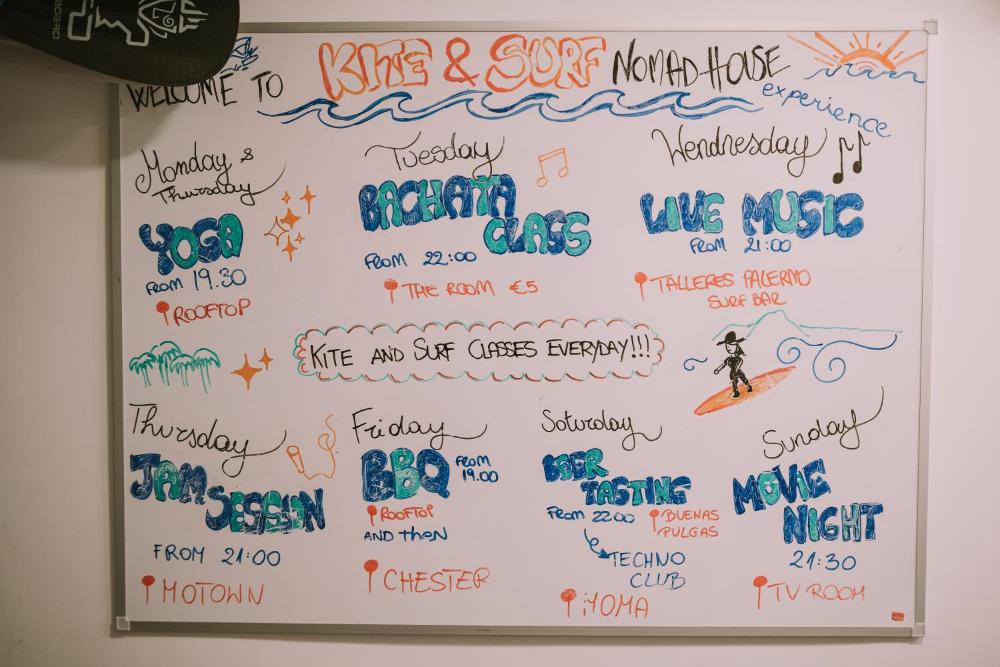 WELCOME TO KITE & SURF NOMAD HOUSE
experience
Monday &
Thursday
YOGA
FROM 19.30
ROOFTOP
Tuesday
BACHATA
CLASS
FROM 22:00
THE ROOM €5
Wendnesday
LIVE MUSIC
FROM 21:00
TALLERES PALERMO
SURF BAR
KITE AND SURF CLASSES EVERYDAY!!!
Thursday
JAM
SESSION
FROM 21:00
MOTOWN
Friday
BBQ FROM
19.00
ROOFTOP
AND THEN
CHESTER
Saturday
BEER
TASTING
FROM 2200
BUENAS
PULGAS
TECHNO
CLUB
Sunday
MOVIE
NIGHT
21:30
TV ROOM